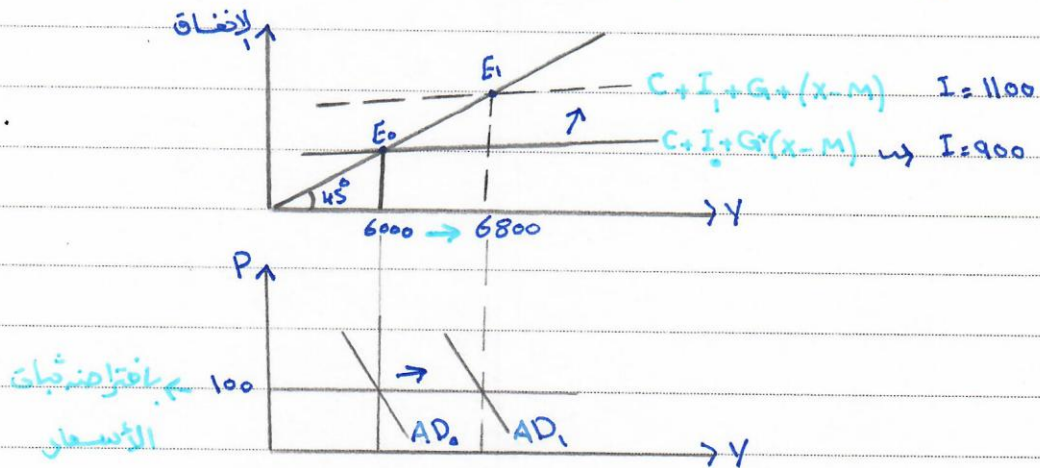 الإنفاق
E₁
C + I₁ + G + (X - M) I = 1100
E₀
C + I₀ + G + (X - M) ⇝ I = 900
45°
Y
6000 → 6800
P
100 ← بافتراض ثبات
الأسعار
AD₀ AD₁
Y